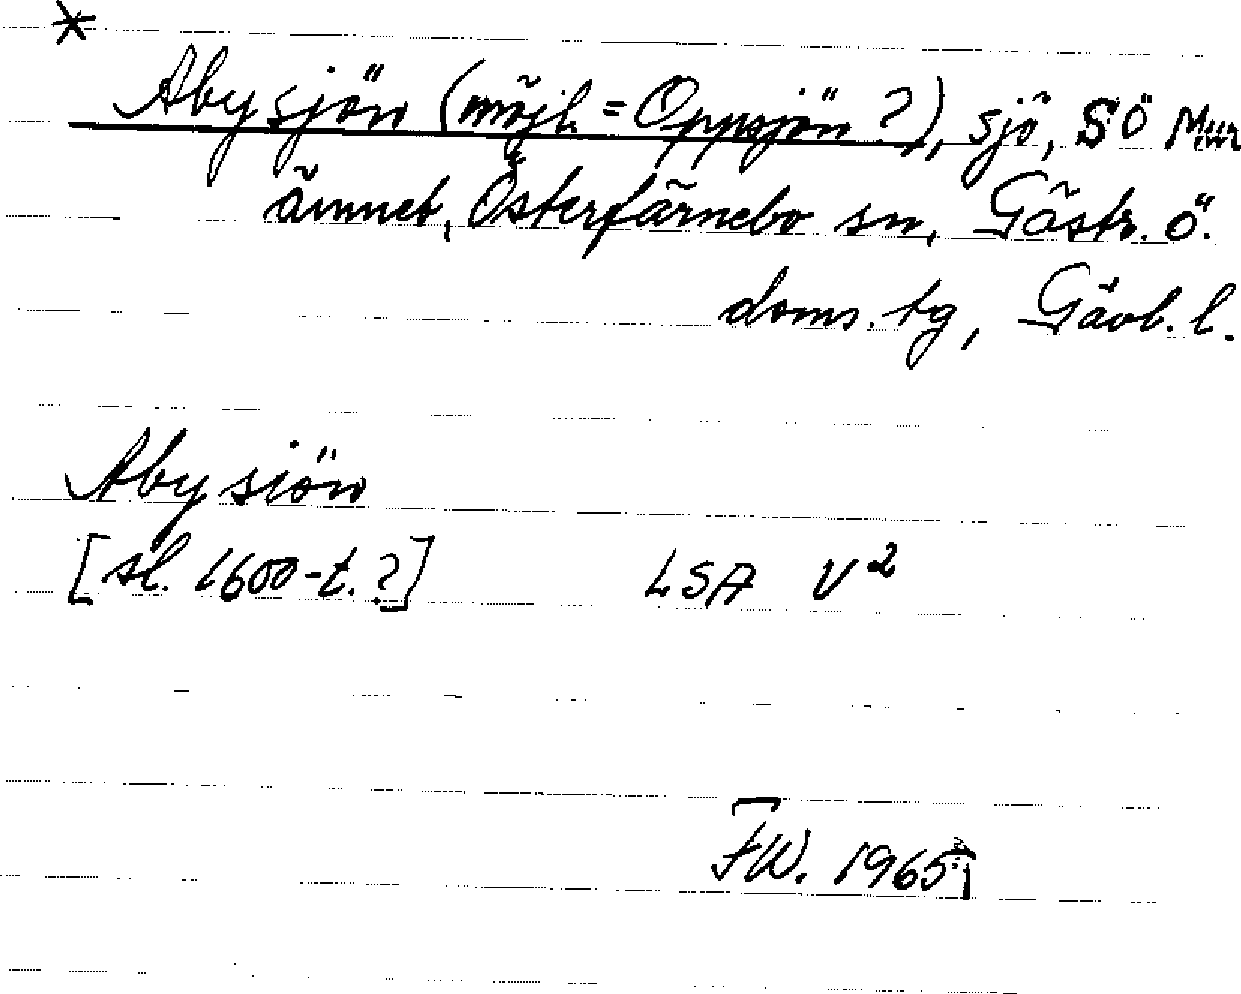 *
Abysjön (möjl. = Oppsjön?), sjö, SÖ Mur
ännet, Österfärnebo sn, Gästr. ö.
doms. tg, Gävb. l.
Aby siön
[sl. 1600-t.?] LSA V²
FW. 1965